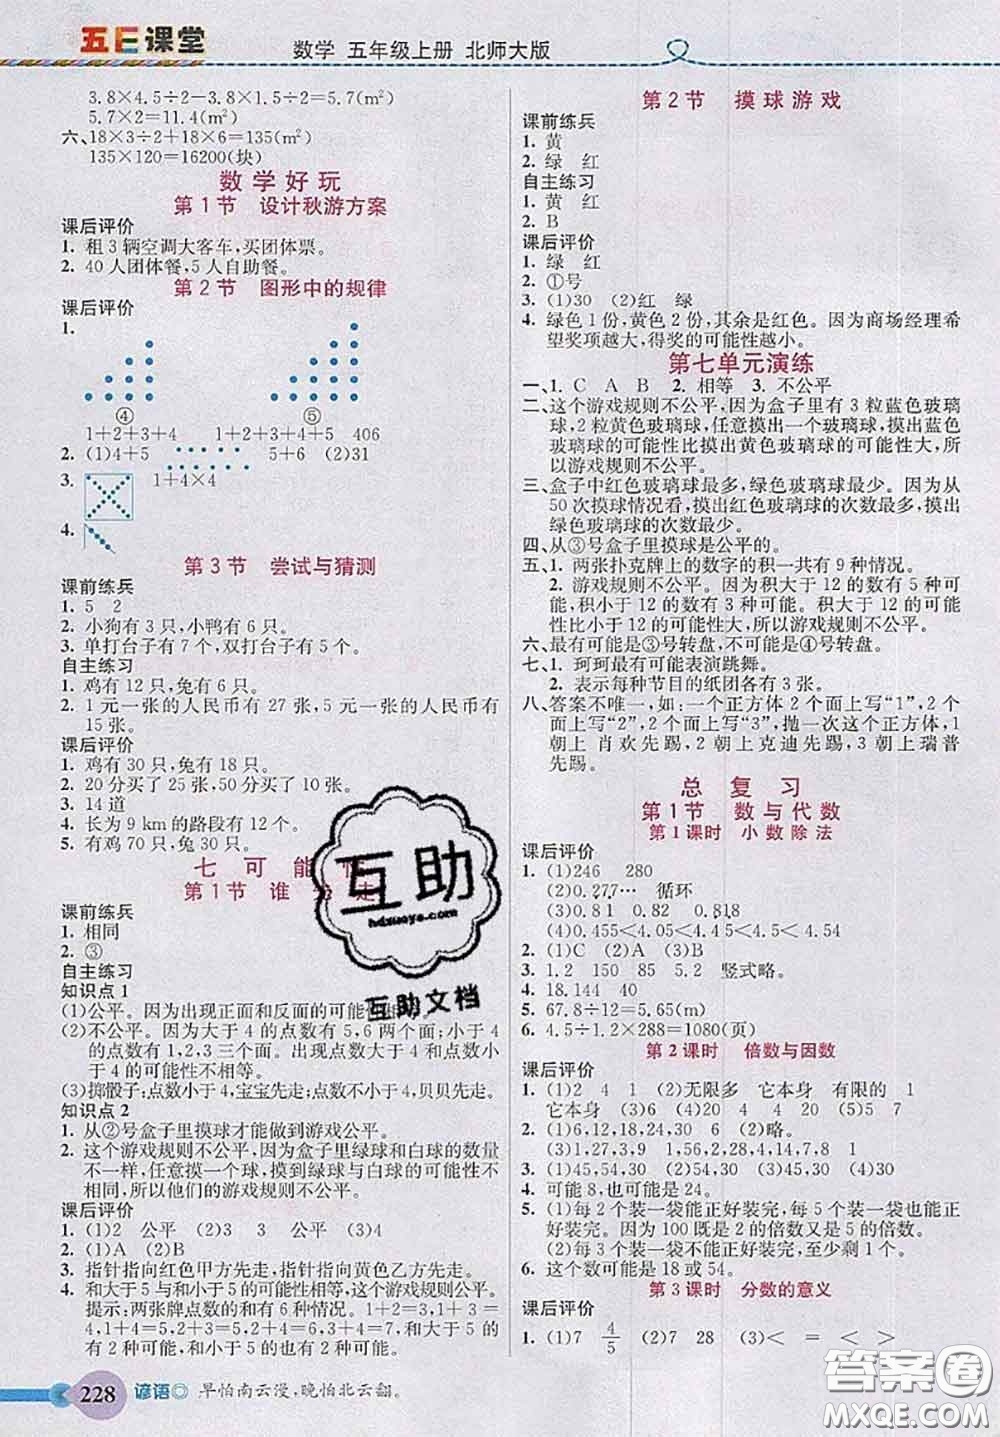 五E课堂
数学 五年级上册 北师大版
3.8×4.5÷2-3.8×1.5÷2=5.7(m²)
5.7×2=11.4(m²)
六、18×3÷2+18×6=135(m²)
135×120=16200(块)
数学好玩
第1节 设计秋游方案
课后评价
1. 租3辆空调大客车,买团体票。
2. 40人团体餐,5人自助餐。
第2节 图形中的规律
课后评价
1.
④ ⑤
1+2+3+4 1+2+3+4+5 406
2. (1)4+5 5+6 (2)31
3. 1+4×4
4.
第3节 尝试与猜测
课前练兵
1. 5 2
2. 小狗有3只,小鸭有6只。
3. 单打台子有7个,双打台子有5个。
自主练习
1. 鸡有12只,兔有6只。
2. 1元一张的人民币有27张,5元一张的人民币有
15张。
课后评价
1. 鸡有30只,兔有18只。
2. 20分买了25张,50分买了10张。
3. 14道
4. 长为9 km的路段有12个。
5. 有鸡70只,兔30只。
七 可能性
第1节 谁 走
课前练兵
1. 相同
2. ③
自主练习
知识点1
(1)公平。因为出现正面和反面的可能性相等。
(2)不公平。因为大于4的点数有5,6两个面;小于4
的点数有1,2,3三个面。出现点数大于4和小于
4的可能性不相等。
(3)掷骰子;点数小于4,宝宝先走;点数大于4,贝贝先走。
知识点2
1. 从②号盒子里摸球才能做到游戏公平。
2. 这个游戏规则不公平,因为盒子里绿球和白球的数量
不一样,任意摸一个球,摸到绿球与白球的可能性不
相同,所以他们的游戏规则不公平。
课后评价
1. (1)2 公平 (2)3 3 公平 (3)4
2. (1)A (2)B
3. 指针指向红色甲方先走,指针指向黄色乙方先走。
4. 和大于5与和小于5的可能性相等,这个游戏规则公平。
提示:两张牌点数的和有6种情况。1+2=3,1+3=
4,1+4=5,2+3=5,2+4=6,3+4=7,和大于5的
有2种可能,和小于5的也有2种可能。
228 谚语◎ 早怕南云漫,晚怕北云翻。
第2节 摸球游戏
课前练兵
1. 黄
2. 绿 红
自主练习
1. 黄 红
2. B
课后评价
1. 绿 红
2. ①号
3. (1)30 (2)红 绿
4. 绿色1份,黄色2份,其余是红色。因为商场经理希
望奖项越大,得奖的可能性越小。
第七单元演练
一、1. C A B 2. 相等 3. 不公平
二、这个游戏规则不公平,因为盒子里有3粒蓝色玻璃
球,2粒黄色玻璃球,任意摸出一个玻璃球,摸出蓝
色玻璃球的可能性比摸出黄色玻璃球的可能性大,所
以游戏规则不公平。
三、盒子中红色玻璃球最多,绿色玻璃球最少。因为从
50次摸球情况看,摸出红色玻璃球的次数最多,摸出
绿色玻璃球的次数最少。
四、从③号盒子里摸球是公平的。
五、1. 两张扑克牌上的数字的积一共有9种情况。
2. 游戏规则不公平。因为积大于12的数有5种可
能,积小于12的数有3种可能。积大于12的可能
性比小于12的可能性大,所以游戏规则不公平。
六、最有可能是③号转盘,不可能是④号转盘。
七、1. 珂珂最有可能表演跳舞。
2. 表示每种节目的纸团各有3张。
八、答案不唯一,如:一个正方体2个面上写“1”,2个
面上写“2”,2个面上写“3”,抛一次这个正方体,1
朝上 肖欢先踢,2朝上克迪先踢,3朝上瑞普
先踢。
总复习
第1节 数与代数
第1课时 小数除法
课后评价
1. (1)246 280
(2)0.27,7… 循环
(3)0.81 0.82 0.818
(4)0.455<4.05<4.5<4.54
2. (1)C (2)A (3)B
3. 1.2 150 85 5.2 竖式略。
4. 18.144 40
5. 67.8÷12=5.65(m)
6. 4.5÷1.2×288=1080(页)
第2课时 倍数与因数
课后评价
1. (1)2 4 1 (2)无限多 它本身 有限的 1
它本身 (3)6 4 20 4 4 20 (4)15 5
2. (1)6,12,18,24,30 6 (2)略。
(3)1,3,9 1,56,2,28,4,14,7,8
3. (1)45,54,30 (2)30,54 (3)45,30 (4)30
4. 可能8,也可能是24。
5. (1)每2个装一袋能正好装完,每5个装一袋也能正
好装完。因为100既是2的倍数又是5的倍数。
(2)每3个装一袋不能正好装完,至少剩1个。
6. 这个数可能是18或54。
第3课时 分数的意义
课后评价
1. (1)7 4/5 (2)7 28 (3)< = <
互助
hdzuoye.com
互助文档
答案圈
MXQE.COM